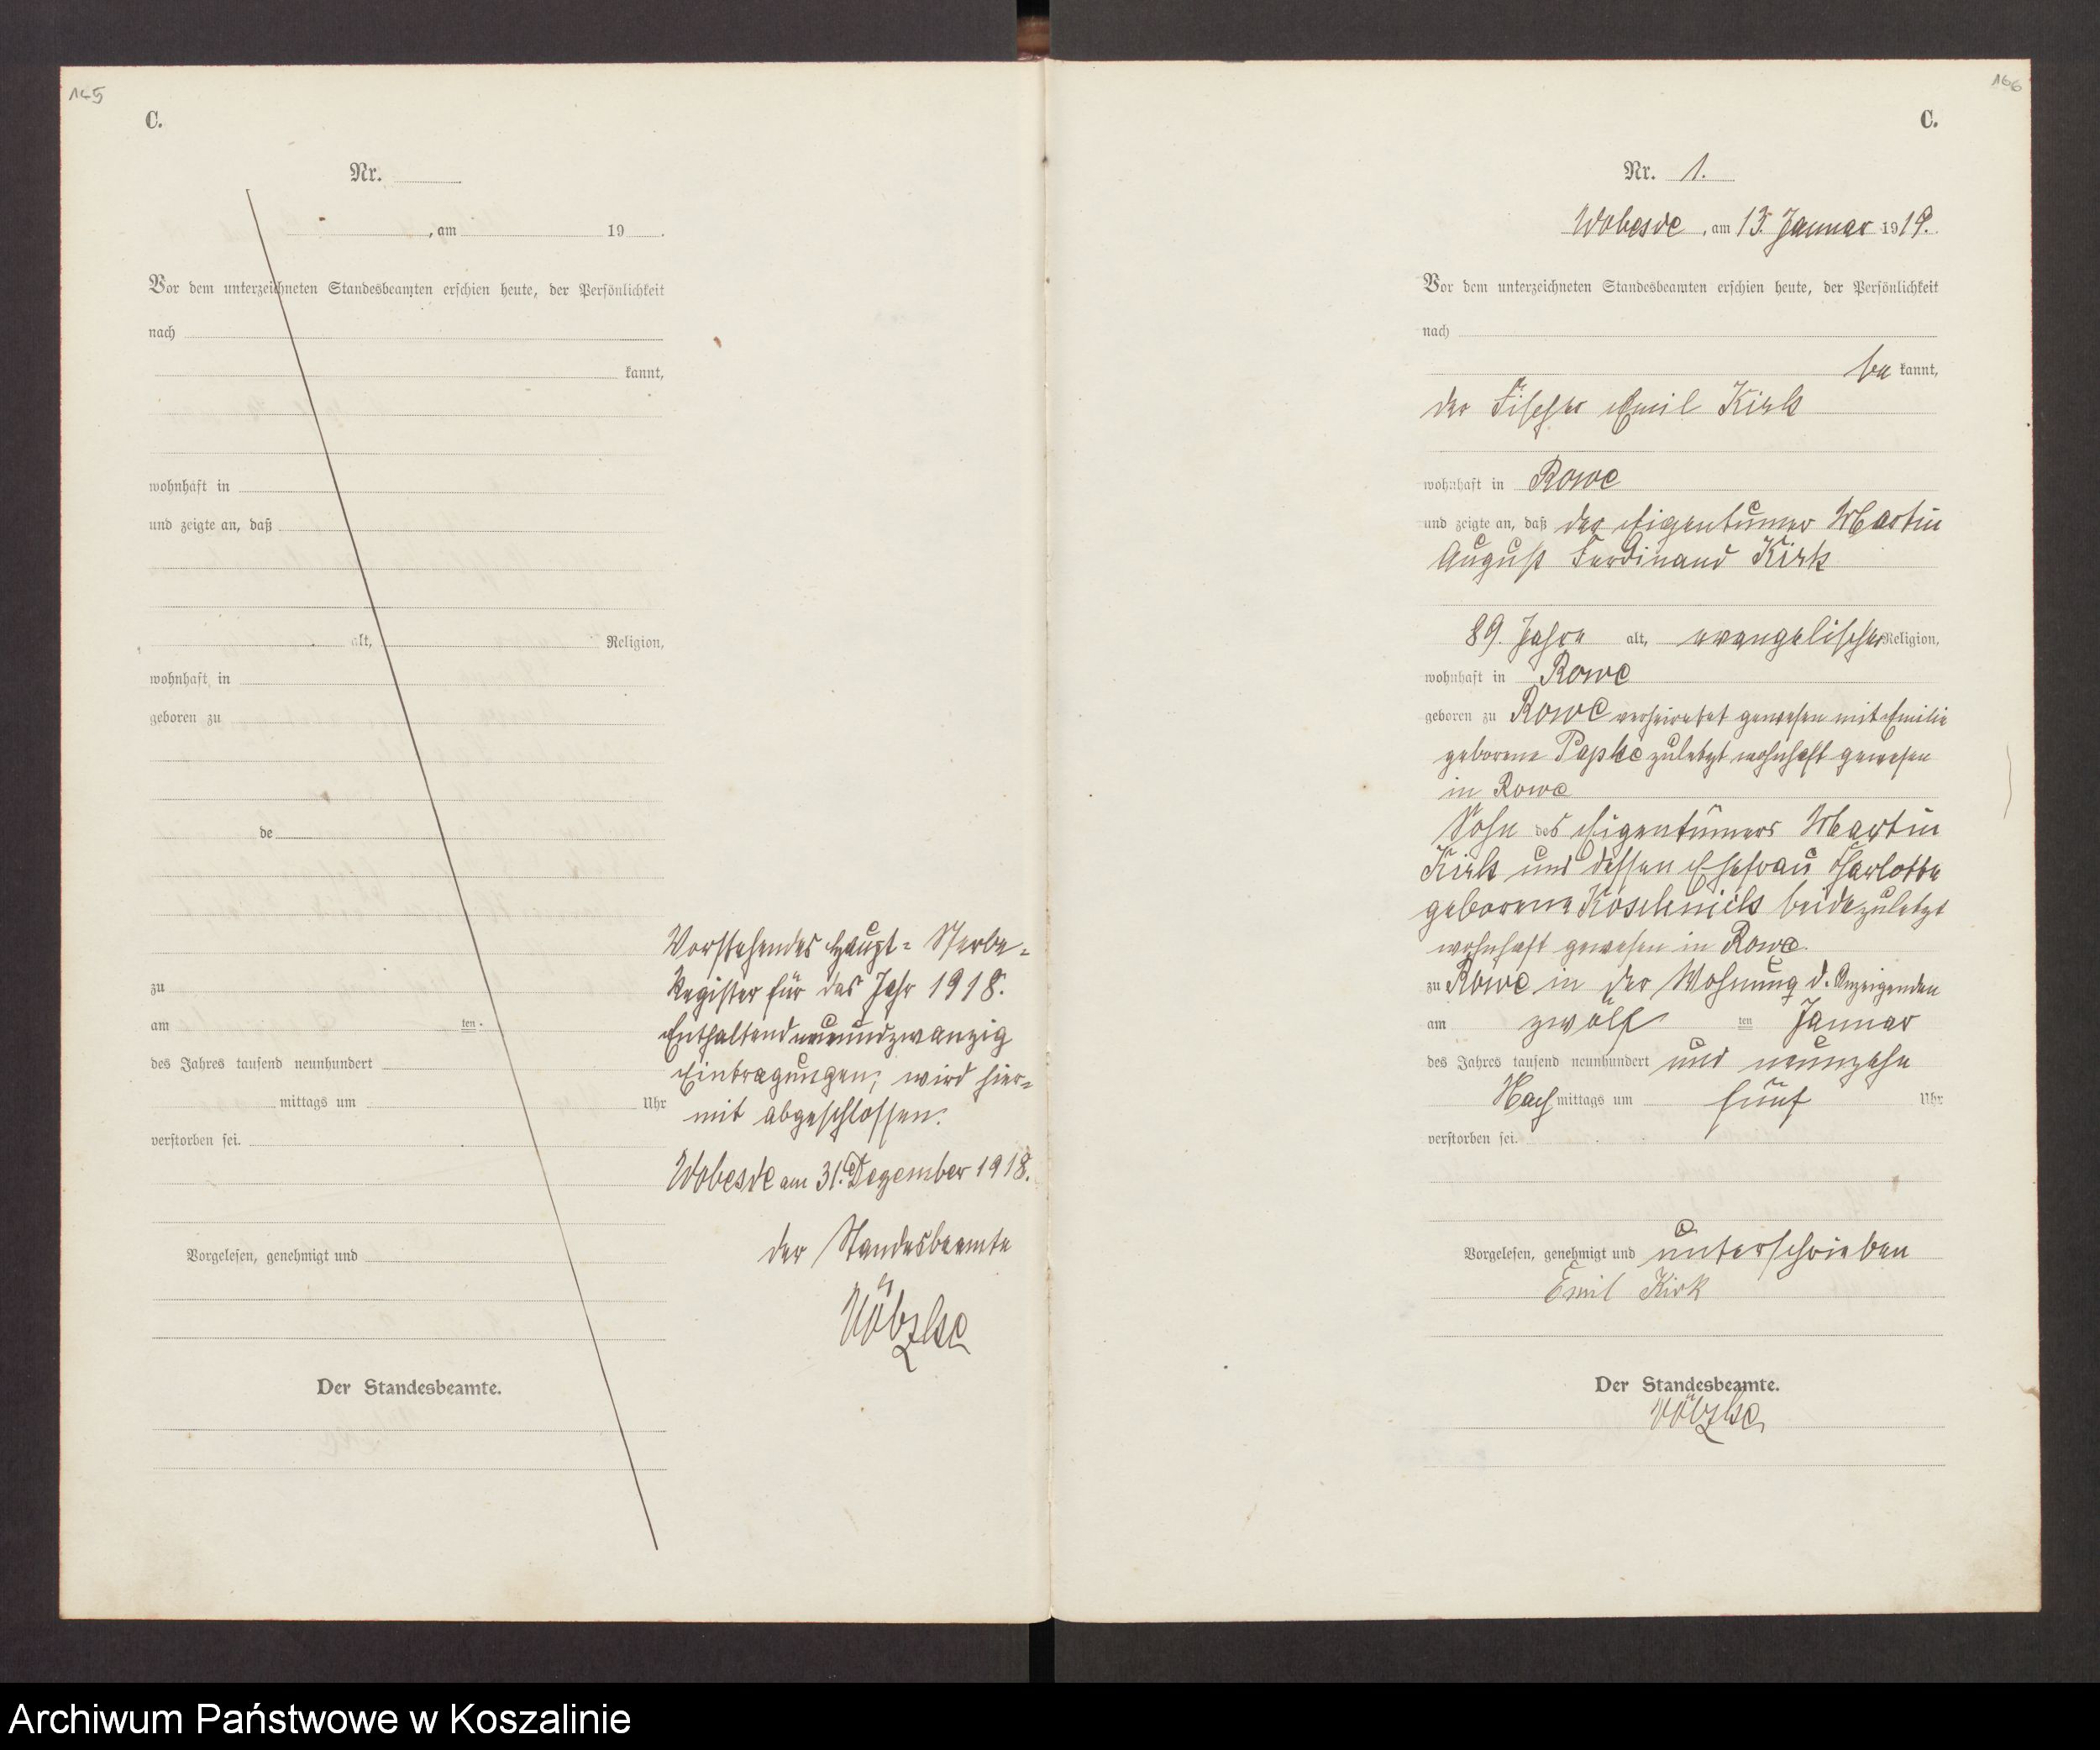 145
C.
Nr.
, am 19 .
Vor dem unterzeichneten Standesbeamten erschien heute, der Persönlichkeit
nach
kannt,
wohnhaft in
und zeigte an, daß
alt, Religion,
wohnhaft in
geboren zu
de
zu
am ten.
des Jahres tausend neunhundert
mittags um Uhr
verstorben sei.
Vorgelesen, genehmigt und
Der Standesbeamte.
Vorstehendes Haupt- Sterbe-
Register für das Jahr 1918.
Enthaltend neunundzwanzig
Eintragungen, wird hier-
mit abgeschlossen.
Wobesde am 31. Dezember 1918.
der Standesbeamte
166
C.
Nr. 1.
Wobesde, am 13. Januar 1919.
Vor dem unterzeichneten Standesbeamten erschien heute, der Persönlichkeit
nach
be kannt,
der Fischer Emil Kirk
wohnhaft in Rowe
und zeigte an, daß der Eigentümer Martin
August Ferdinand Kirk
89. Jahre alt, evangelischer Religion,
wohnhaft in Rowe
geboren zu Rowe verheiratet gewesen mit Emilie
geborene Papke zuletzt wohnhaft gewesen
in Rowe
Sohn des Eigentümers Martin
Kirk und dessen Ehefrau Charlotte
geborene Koschnick beide zuletzt
wohnhaft gewesen in Rowe.
zu Rowe in der Wohnung d. Anzeigenden
am zwölf ten Januar
des Jahres tausend neunhundert und neunzehn
Nach mittags um fünf Uhr
verstorben sei.
Vorgelesen, genehmigt und unterschrieben
Emil Kirk
Der Standesbeamte.
Archiwum Państwowe w Koszalinie